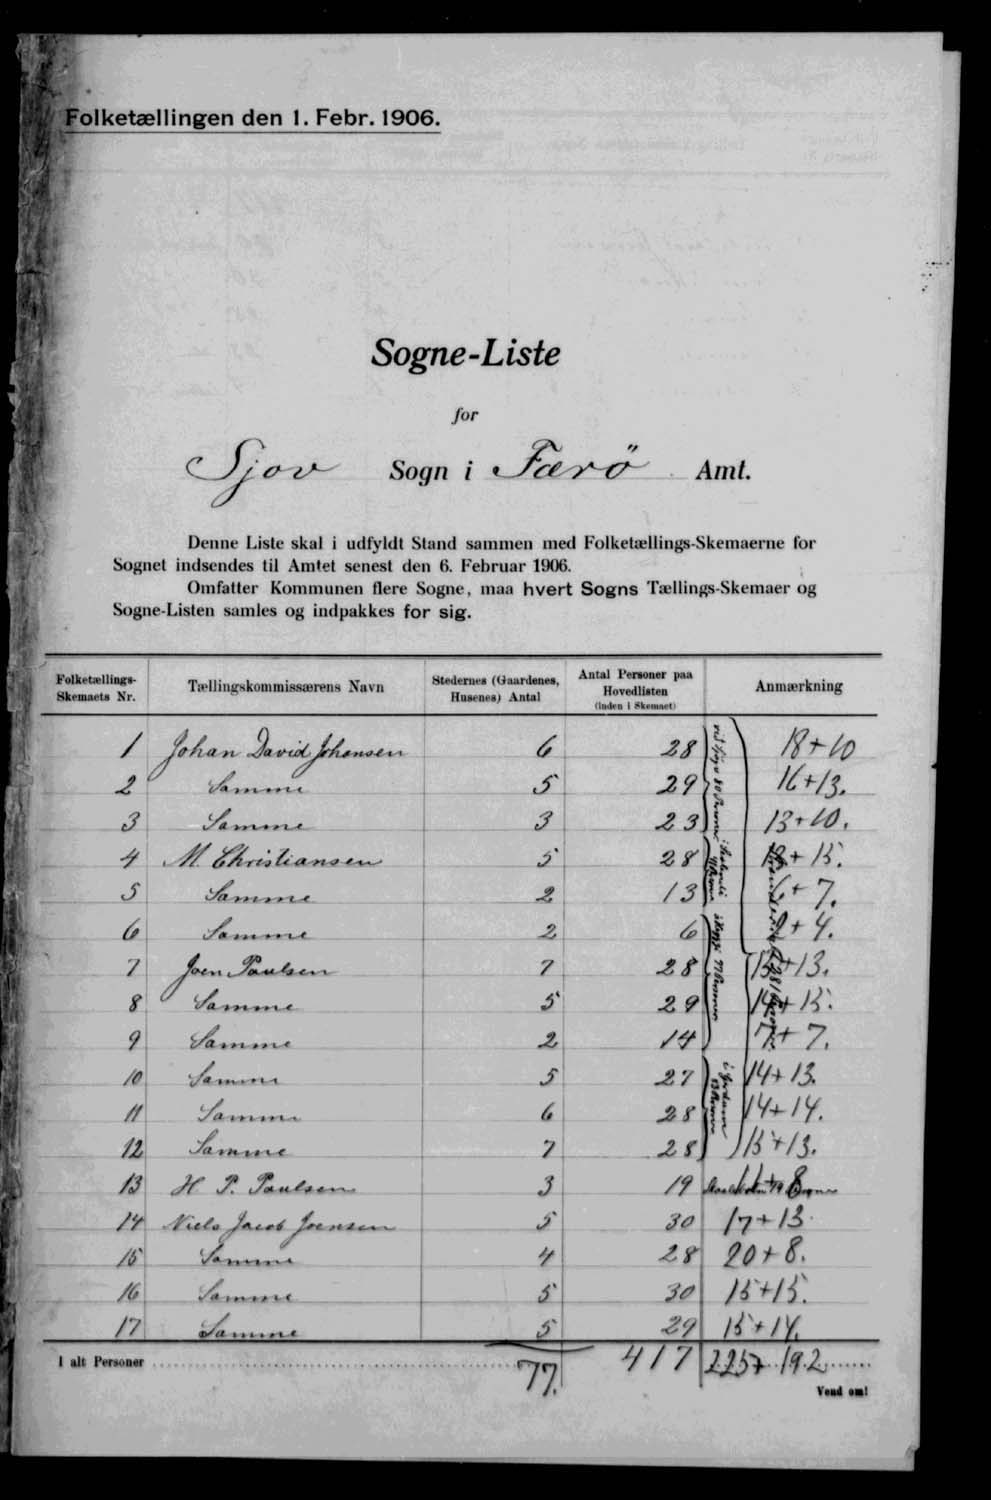 Folketællingen den 1. Febr. 1906.
Sogne-Liste
for
Sjov Sogn i Færö Amt.
Denne Liste skal i udfyldt Stand sammen med Folketællings-Skemaerne for
Sognet indsendes til Amtet senest den 6. Februar 1906.
Omfatter Kommunen flere Sogne, maa hvert Sogns Tællings-Skemaer og
Sogne-Listen samles og indpakkes for sig.
Folketællings-Skemaets Nr. Tællingskommissærens Navn Stedernes (Gaardenes, Husenes) Antal Antal Personer paa Hovedlisten (inden i Skemaet) Anmærkning
1 Johan David Johansen 6 28 18+10
2 Samme 5 29 16+13.
3 Samme 3 23 13+10.
4 M. Christiansen 5 28 + 15.
5 Samme 2 13 6+7.
6 Samme 2 6 2+4.
7 Joen Paulsen 7 28 15+13.
8 Samme 5 29 14+15.
9 Samme 2 14 7+7.
10 Samme 5 27 14+13.
11 Samme 6 28 14+14.
12 Samme 7 28 15+13.
13 H. P. Paulsen 3 19 11+8
14 Niels Jacob Joensen 5 30 17+13.
15 Samme 4 28 20+8.
16 Samme 5 30 15+15.
17 Samme 5 29 15+14.
I alt Personer 77. 417 225+192
Vend om!